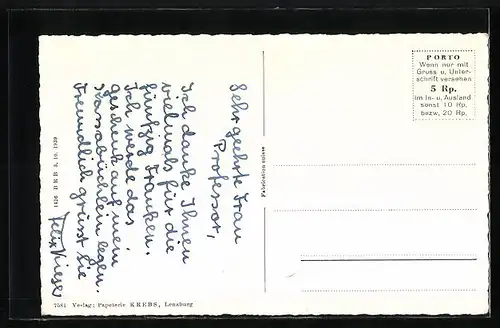 Sehr geehrte Frau
Professor,
Ich danke Ihnen
vielmals für die
fünfzig Franken.
Ich werde das
Geschenk auf mein
Kassabüchlein legen.
Freundlich grüsst Sie
PORTO
Wenn nur mit
Gruss u. Unter-
schrift versehen
5 Rp.
im In- u. Ausland
sonst 10 Rp.
bezw. 20 Rp.
Fabrication suisse
1426 BRB 3. 10. 1939
7561 Verlag: Papeterie KREBS, Lenzburg